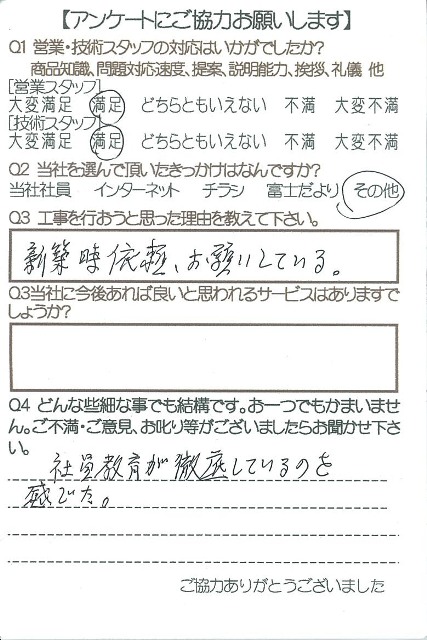 【アンケートにご協力お願いします】
Q1 営業・技術スタッフの対応はいかがでしたか?
商品知識、問題対応速度、提案、説明能力、挨拶、礼儀 他
[営業スタッフ]
大変満足 満足 どちらともいえない 不満 大変不満
[技術スタッフ]
大変満足 満足 どちらともいえない 不満 大変不満
Q2 当社を選んで頂いたきっかけはなんですか?
当社社員 インターネット チラシ 富士だより その他
Q3 工事を行おうと思った理由を教えて下さい。
新築時依頼、お願いしている。
Q3当社に今後あれば良いと思われるサービスはありますで
しょうか?
Q4 どんな些細な事でも結構です。お一つでもかまいませ
ん。ご不満・ご意見、お叱り等がございましたらお聞かせ下さ
い。
社員教育が徹底しているのを
感じた。
ご協力ありがとうございました